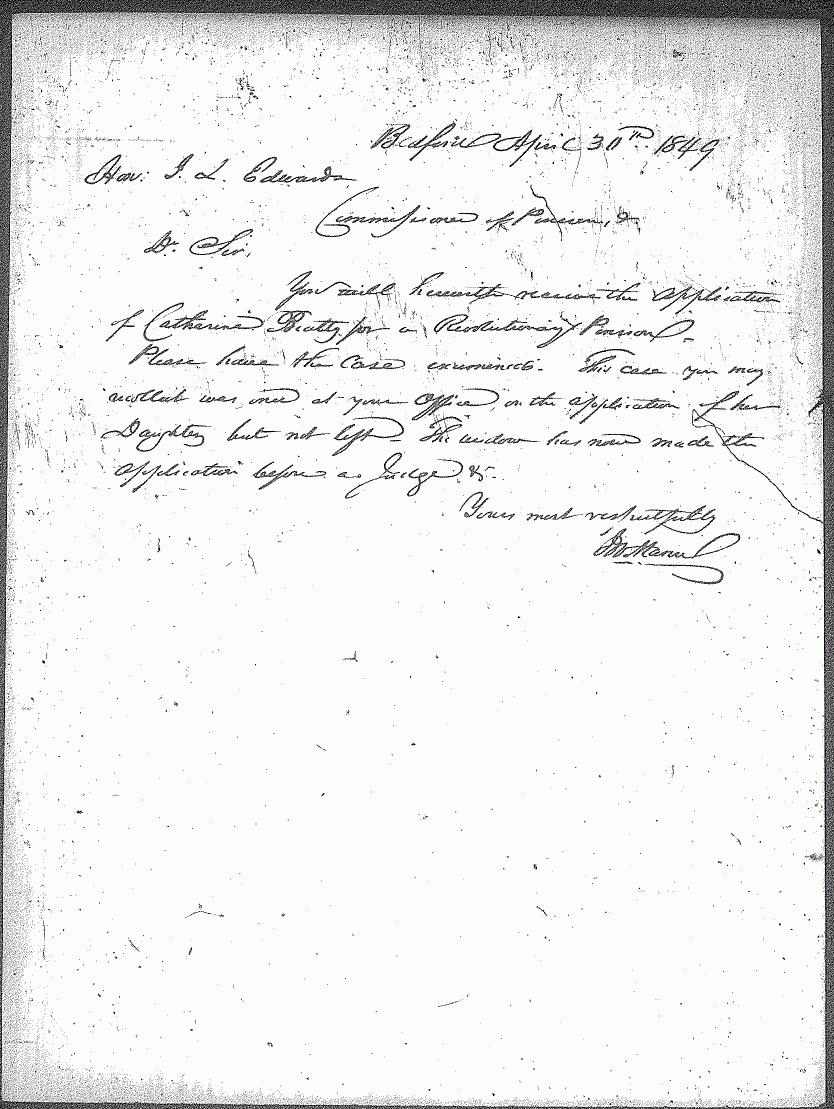 Bedford April 30th 1849
Hon: J. L. Edwards
Commissioner of Pension, &
Dr. Sir,
You will herewith receive the application
of Catharine Beatty for a Revolutionary Pension.
Please have the case examined. This case you may
recollect was once at your Office, on the application of her
Daughter but not left. The widow has now made the
application before a Judge &c.
Yours most respectfully